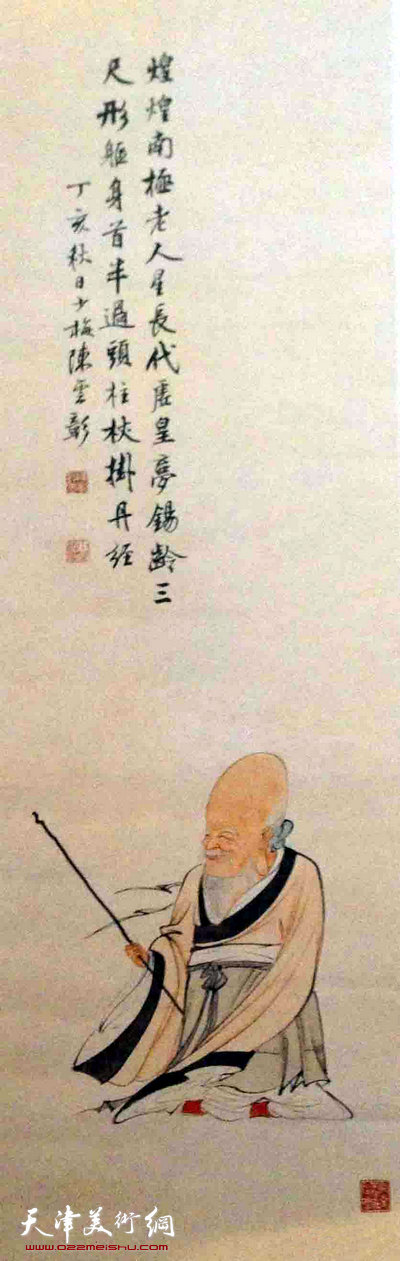 煌煌南極老人星長代虛皇夢錫齡三
尺形軀身首半過頭柱杖掛丹經
丁亥秋日少梅陳雲彰
天津美術網
www.022meishu.com